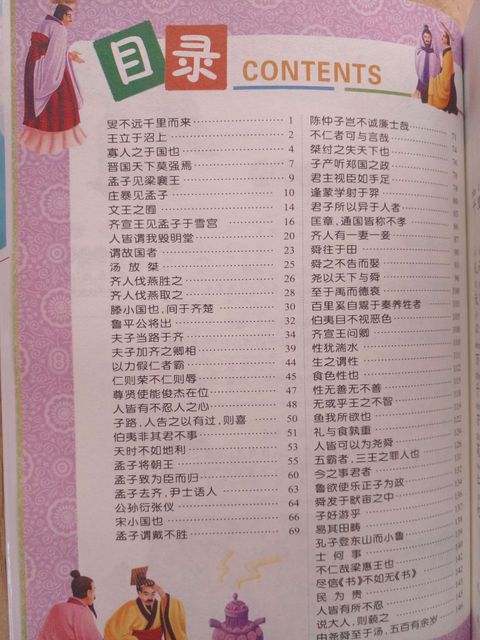 目录
CONTENTS
叟不远千里而来 1
王立于沼上 2
寡人之于国也 4
晋国天下莫强焉 7
孟子见梁襄王 9
庄暴见孟子 10
文王之囿 14
齐宣王见孟子于雪宫 16
人皆谓我毁明堂 20
谓故国者 23
汤放桀 25
齐人伐燕胜之 26
齐人伐燕取之 28
滕小国也，间于齐楚 30
鲁平公将出 32
夫子当路于齐 34
夫子加齐之卿相 39
以力假仁者霸 44
仁则荣不仁则辱 45
尊贤使能俊杰在位 47
人皆有不忍人之心 48
子路，人告之以有过，则喜 50
伯夷非其君不事 51
天时不如地利 53
孟子将朝王 55
孟子致为臣而归 60
孟子去齐，尹士语人 63
公孙衍张仪 64
宋小国也 66
孟子谓戴不胜 69
陈仲子岂不诚廉士哉 71
不仁者可与言哉
桀纣之失天下也
子产听郑国之政
君主视臣如手足
逢蒙学射于羿
君子所以异于人者
匡章，通国皆称不孝
齐人有一妻一妾
舜往于田
舜之不告而娶
尧以天下与舜
至于禹而德衰
百里奚自鬻于秦养牲者
伯夷目不视恶色
齐宣王问卿
性犹湍水
生之谓性
食色性也
性无善无不善
无或乎王之不智
鱼我所欲也
礼与食孰重
人皆可以为尧舜
五霸者，三王之罪人也
今之事君者
鲁欲使乐正子为政
舜发于畎亩之中
子好游乎
易其田畴
孔子登东山而小鲁
士何事
不仁哉梁惠王也
尽信《书》不如无《书》
民为贵
人皆有所不忍
说大人，则藐之
由尧舜至于汤，五百有余岁